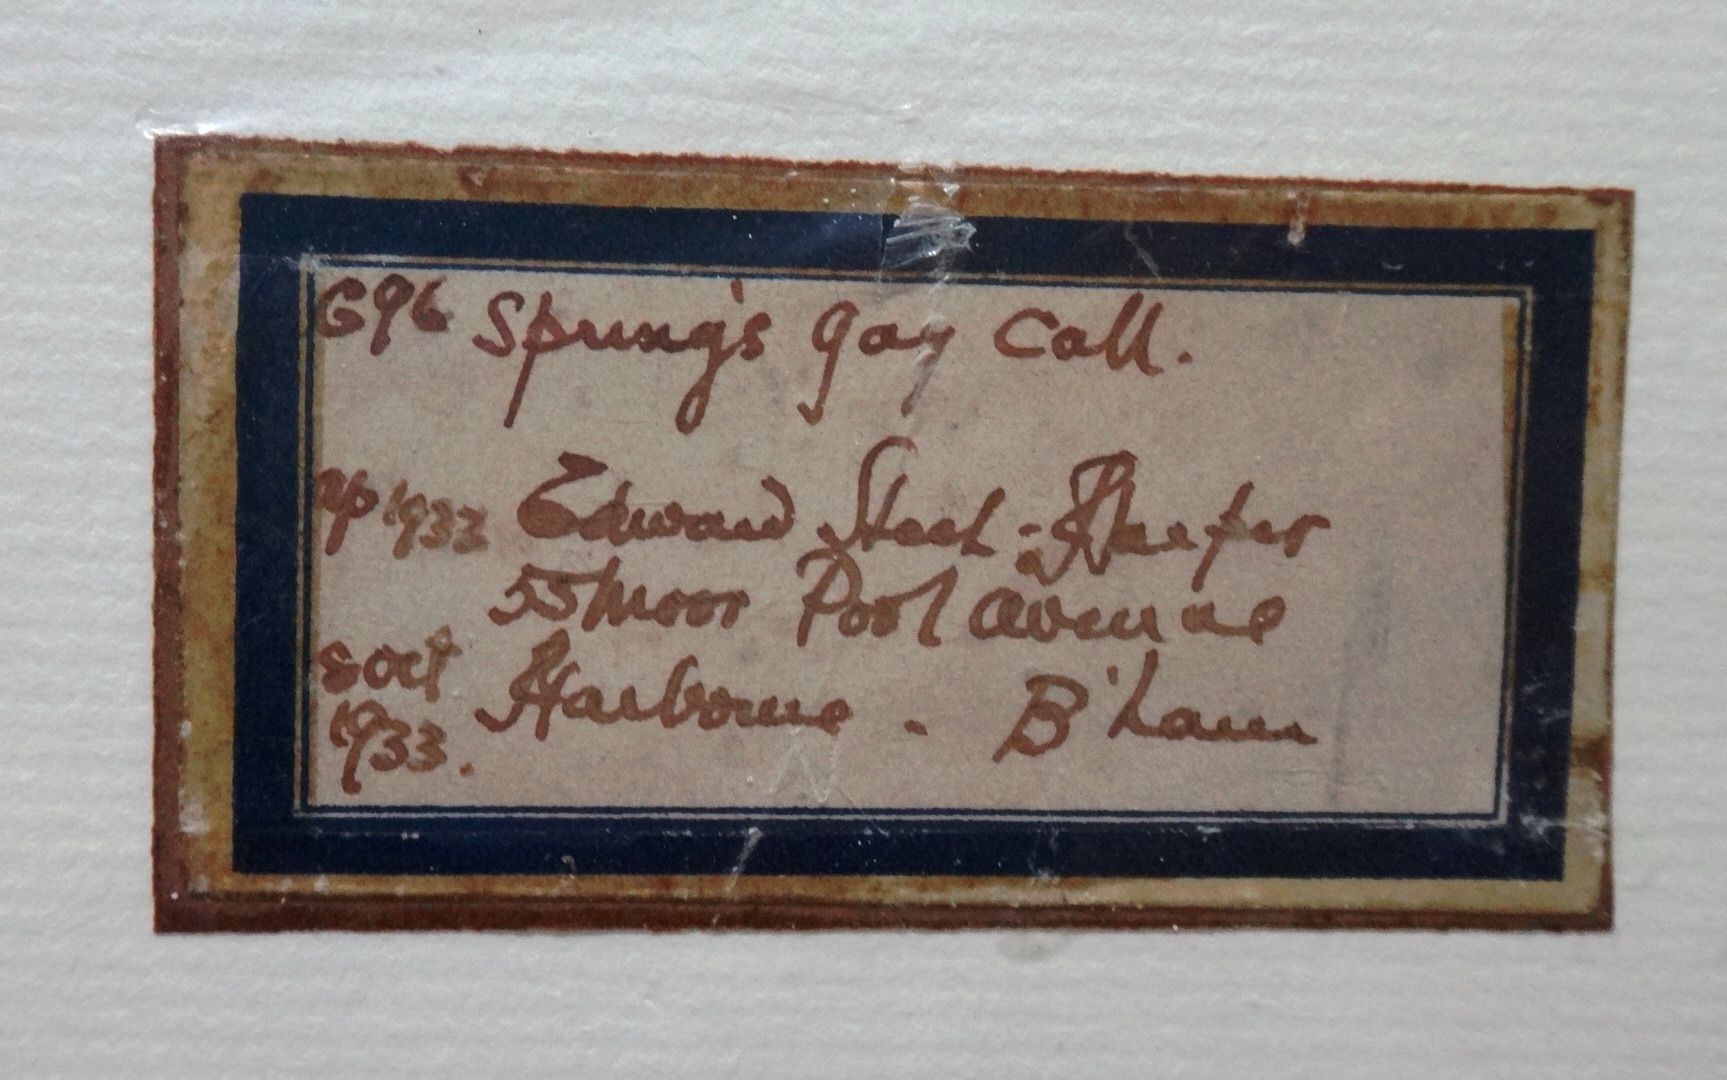 696 Spring's gay Call.
1933 Edward Steel-Harper
55 Moor Pool avenue
Harborne. B'ham
1933.